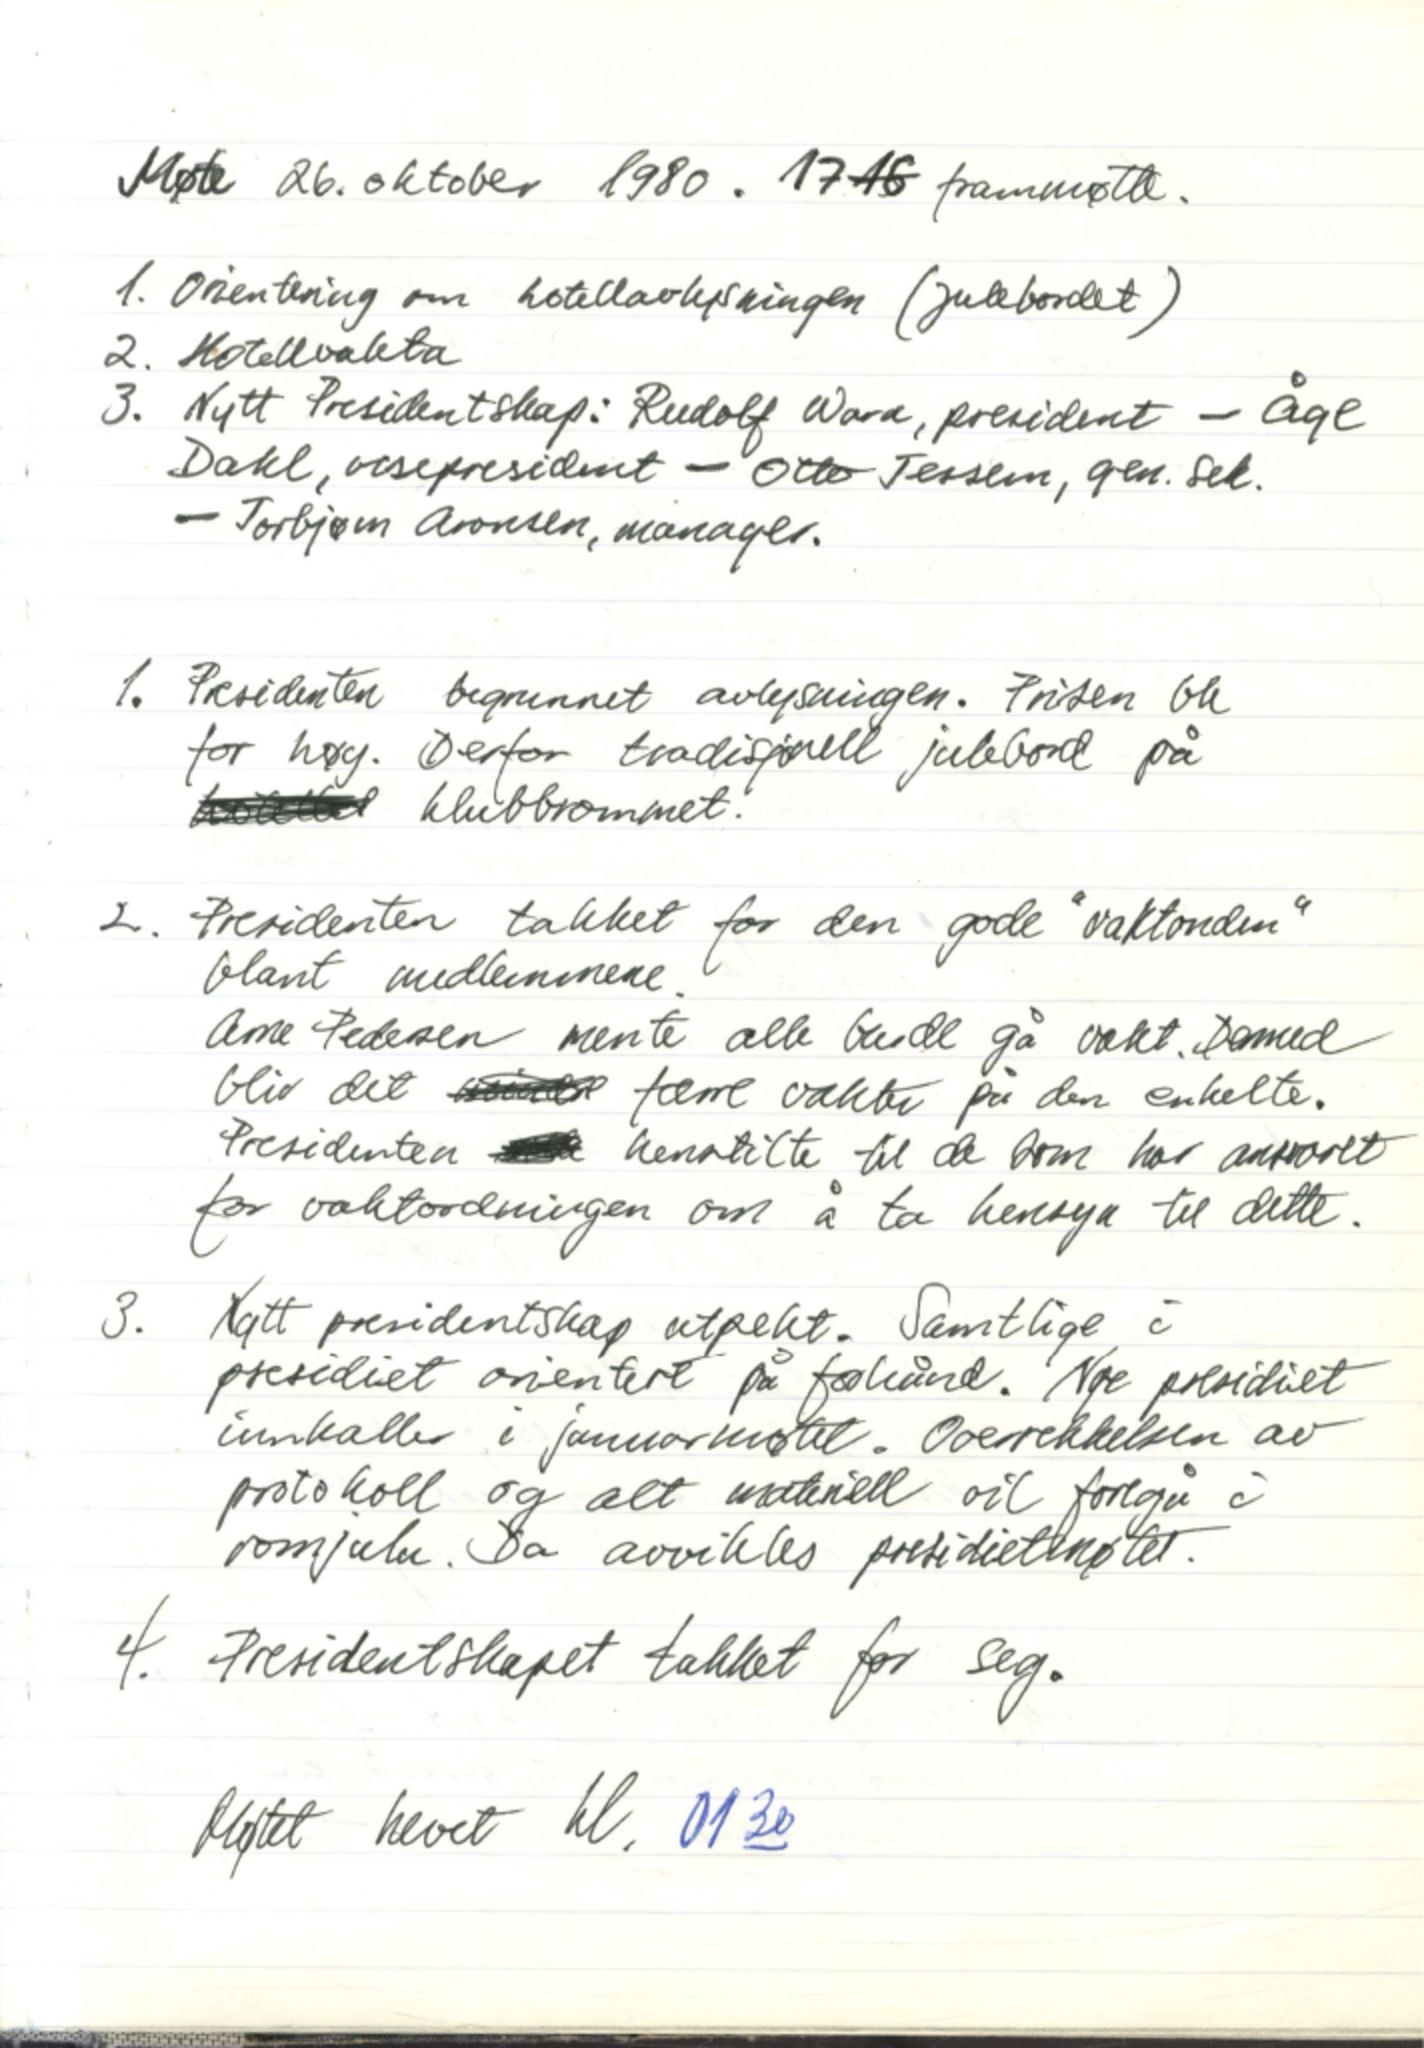 Møte 26. oktober 1980. 17 16 frammøtte.
1. Orientering om hotellavlysningen (julebordet)
2. Hotellvakta
3. Nytt Presidentskap: Rudolf Wara, president - Åge
Dahl, visepresident - Otto Jessem, gen. sek.
- Torbjørn Aronsen, manager.
1. Presidenten begrunnet avlysningen. Prisen ble
for høy. Derfor tradisjonell julebord på
hotellet klubbrommet.
2. Presidenten takket for den gode "vaktånden"
blant medlemmene.
Arne Pedersen mente alle burde gå vakt. Dermed
blir det færre vakter på den enkelte.
Presidenten henstilte til de som har ansvaret
for vaktordningen om å ta hensyn til dette.
3. Nytt presidentskap utpekt. Samtlige i
presidiet orientert på forhånd. Nye presidiet
innkaller i januarmøtet. Overrekkelsen av
protokoll og alt materiell vil foregå i
romjula. Da avvikles presidietmøtet.
4. Presidentskapet takket for seg.
Møtet hevet kl. 01 30